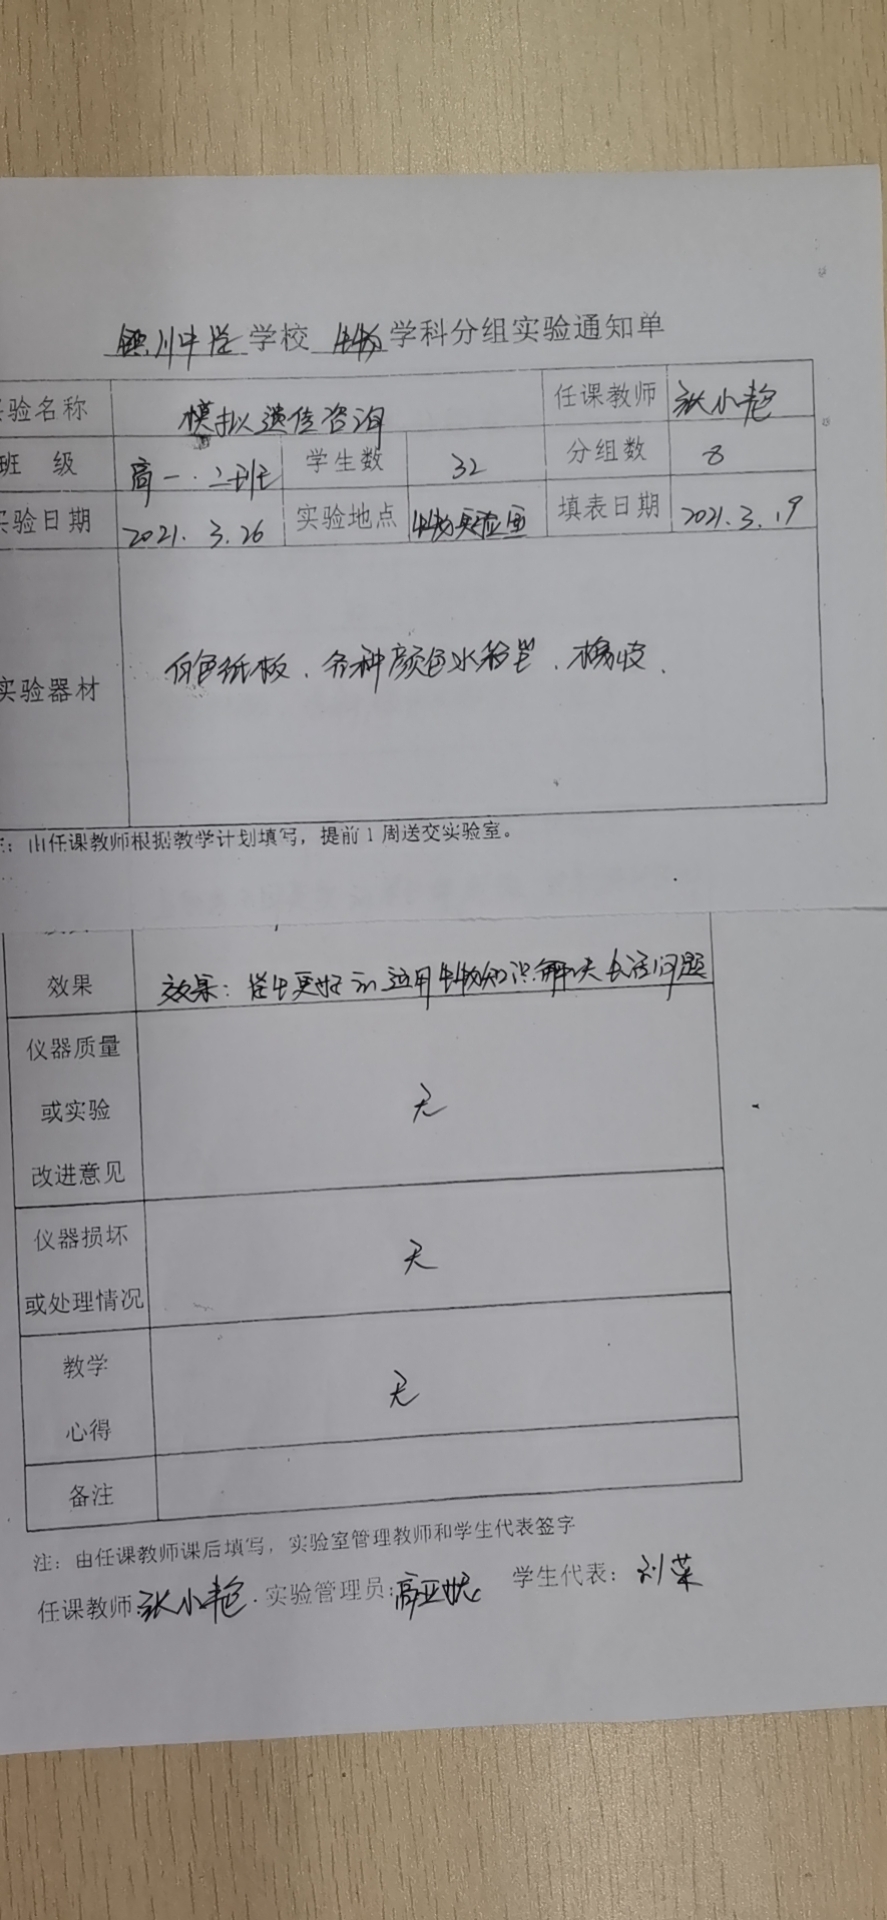 镇川中学学校 生物学科分组实验通知单
验名称 模拟遗传咨询 任课教师 张小艳
班 级 高一·二班 学生数 32 分组数 8
实验日期 2021.3.26 实验地点 生物实验室 填表日期 2021.3.19
实验器材 白色纸板、各种颜色水彩笔、橡皮.
由任课教师根据教学计划填写，提前1周送交实验室。
效果 效果：学生更好 运用生物知识解决生活问题
仪器质量
或实验 无
改进意见
仪器损坏 无
或处理情况
教学 无
心得
备注
注：由任课教师课后填写，实验室管理教师和学生代表签字
任课教师 张小艳. 实验管理员: 高亚 学生代表: 刘荣